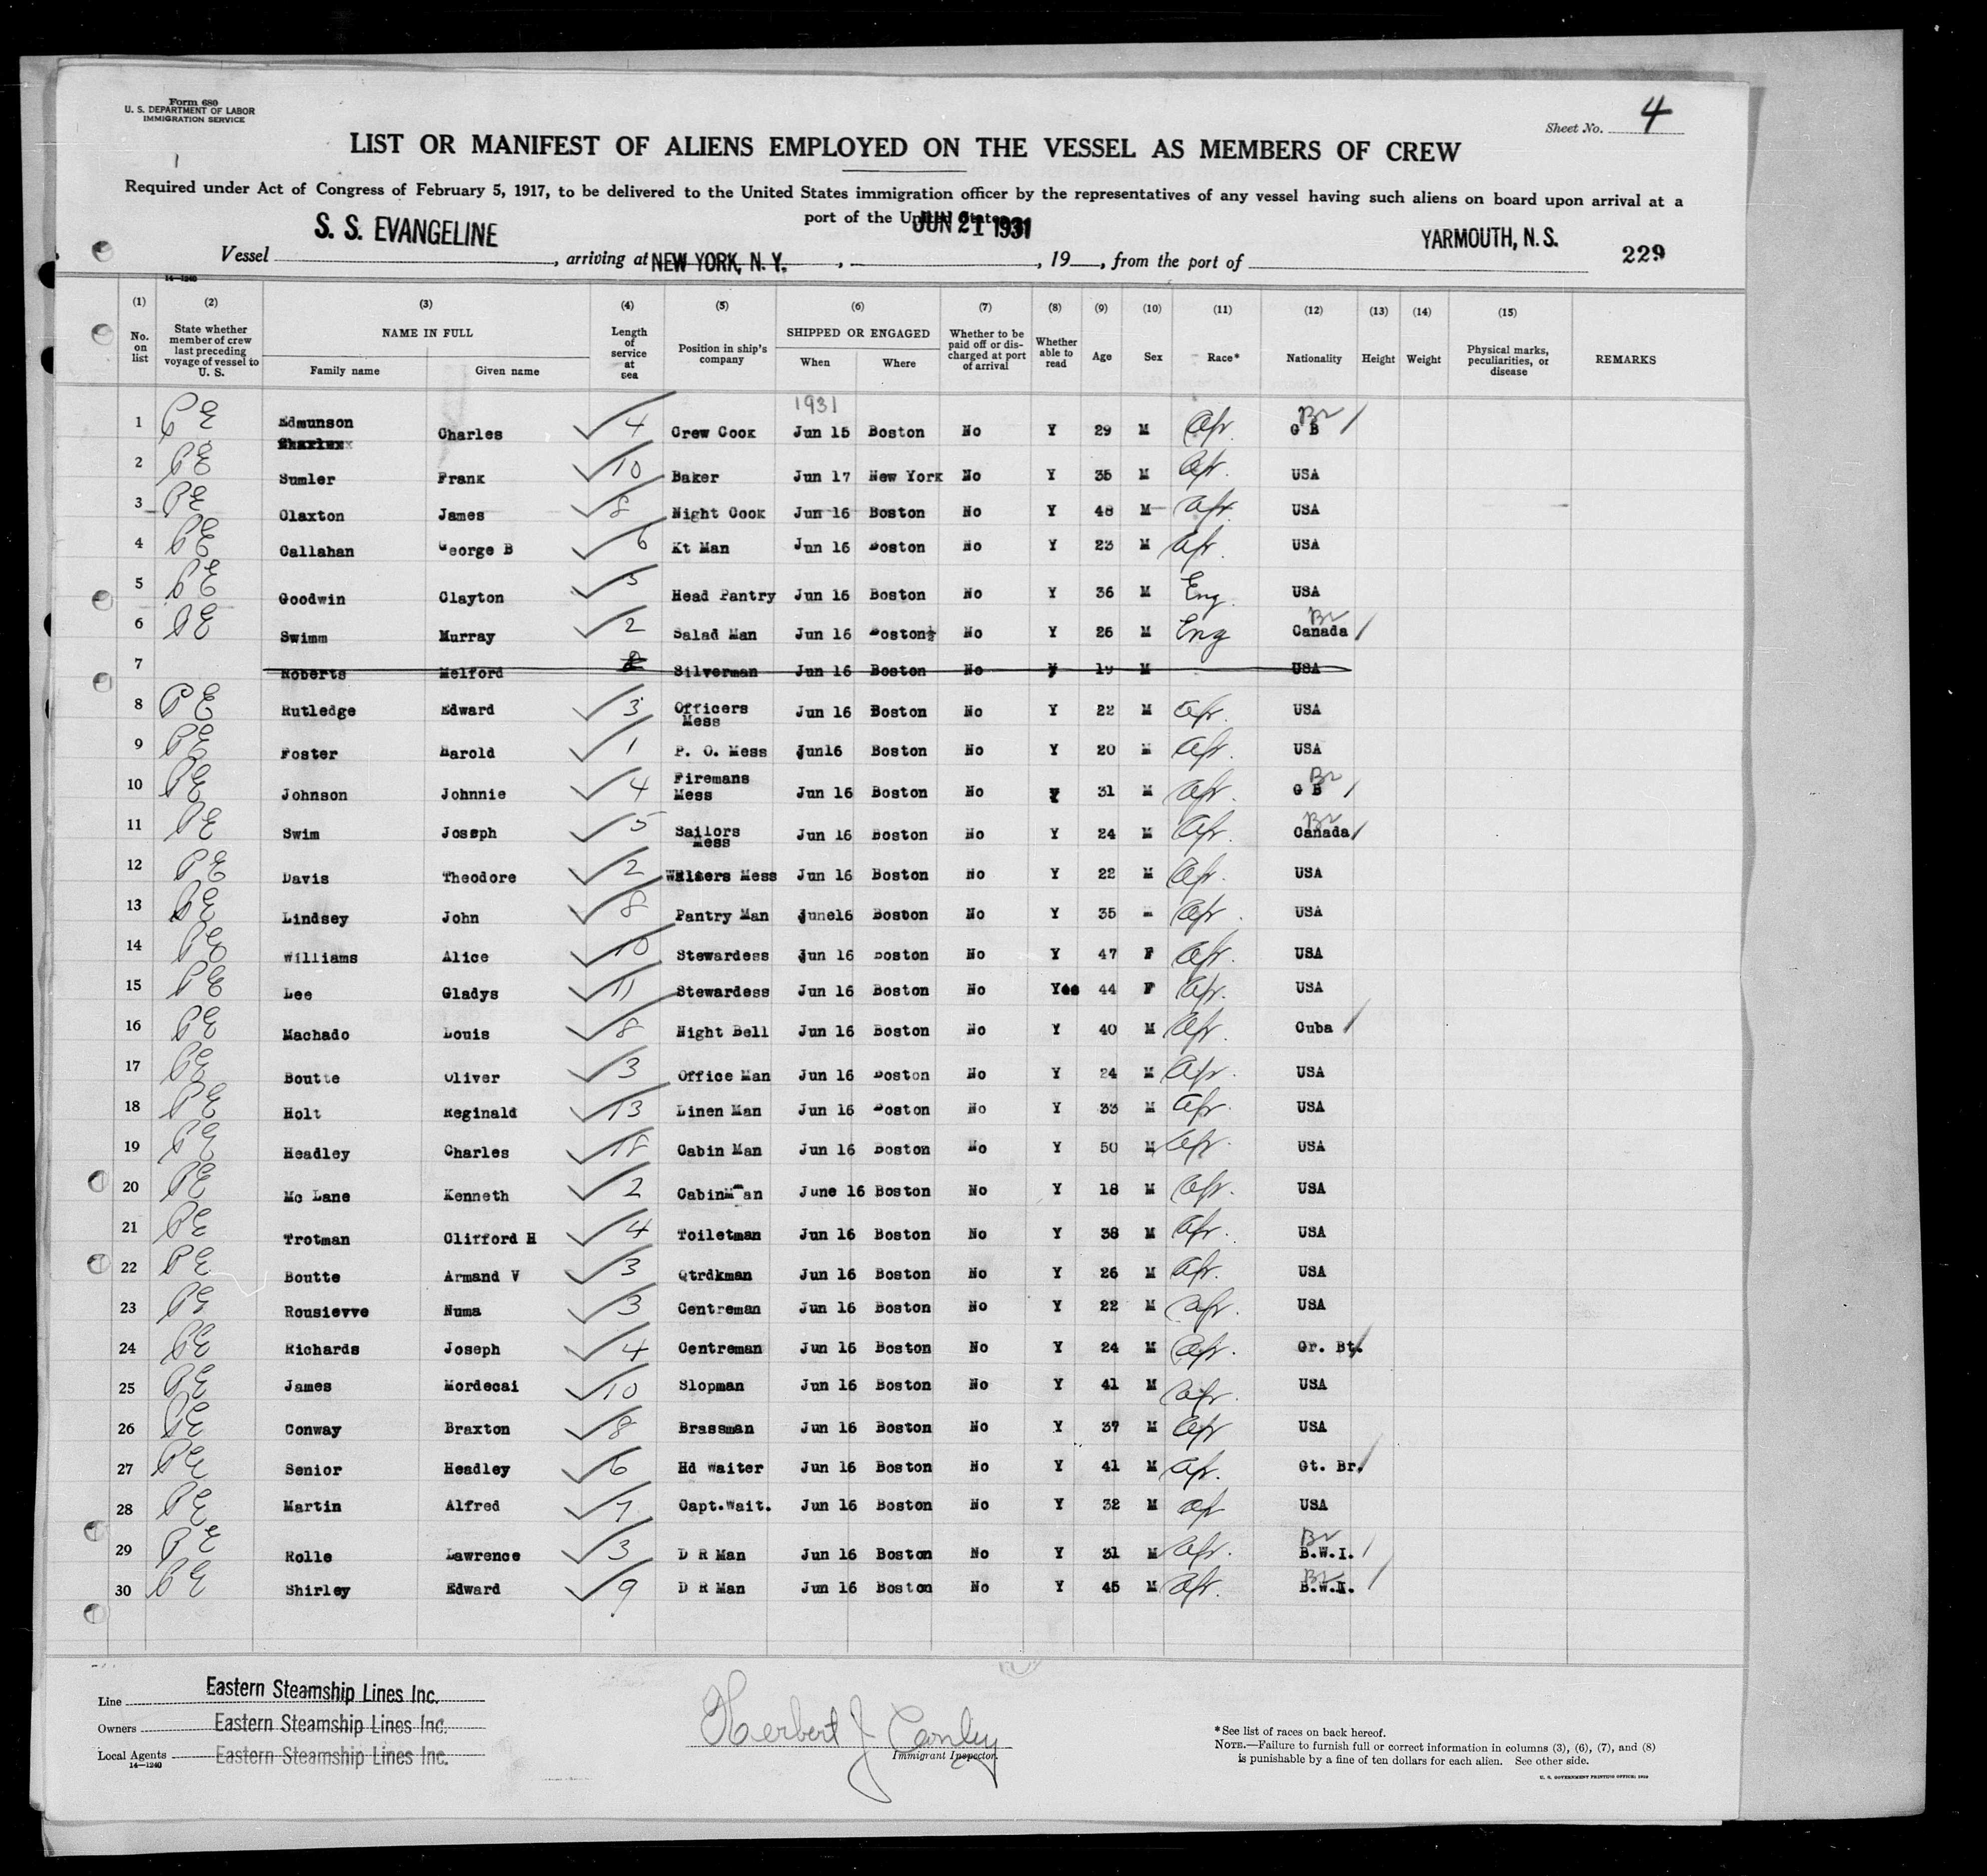 Form 680
U. S. DEPARTMENT OF LABOR
IMMIGRATION SERVICE
Sheet No. 4
LIST OR MANIFEST OF ALIENS EMPLOYED ON THE VESSEL AS MEMBERS OF CREW
Required under Act of Congress of February 5, 1917, to be delivered to the United States immigration officer by the representatives of any vessel having such aliens on board upon arrival at a
port of the United States
JUN 21 1931
Vessel S. S. EVANGELINE, arriving at NEW YORK, N. Y., 19, from the port of YARMOUTH, N. S. 229
14—1240
(1) (2) (3) (4) (5) (6) (7) (8) (9) (10) (11) (12) (13) (14) (15)
No. on list State whether member of crew last preceding voyage of vessel to U. S. NAME IN FULL Family name Given name Length of service at sea Position in ship's company SHIPPED OR ENGAGED When Where Whether to be paid off or discharged at port of arrival Whether able to read Age Sex Race* Nationality Height Weight Physical marks, peculiarities, or disease REMARKS
1931
1 PE Edmunson Charles 4 Crew Cook Jun 15 Boston No Y 29 M Afr. G B Br
2 PE Sumler Frank 10 Baker Jun 17 New York No Y 35 M Afr. USA
3 PE Claxton James 8 Night Cook Jun 16 Boston No Y 48 M Afr. USA
4 PE Callahan George B 6 Kt Man Jun 16 Boston No Y 23 M Afr. USA
5 PE Goodwin Clayton 5 Head Pantry Jun 16 Boston No Y 36 M Eng. USA
6 PE Swimm Murray 2 Salad Man Jun 16 Boston No Y 26 M Eng Canada Br
7 Roberts Melford Silverman Jun 16 Boston No Y 19 M USA
8 PE Rutledge Edward 3 Officers Mess Jun 16 Boston No Y 22 M Afr. USA
9 PE Foster Harold 1 P. O. Mess Jun16 Boston No Y 20 M Afr. USA
10 PE Johnson Johnnie 4 Firemans Mess Jun 16 Boston No Y 31 M Afr. G B Br
11 PE Swim Joseph 5 Sailors Mess Jun 16 Boston No Y 24 M Afr. Canada Br
12 PE Davis Theodore 2 Waiters Mess Jun 16 Boston No Y 22 M Afr. USA
13 PE Lindsey John 8 Pantry Man June16 Boston No Y 35 M Afr. USA
14 PE Williams Alice 10 Stewardess Jun 16 Boston No Y 47 F Afr. USA
15 PE Lee Gladys 11 Stewardess Jun 16 Boston No Yes 44 F Afr. USA
16 PE Machado Louis 8 Night Bell Jun 16 Boston No Y 40 M Afr. Cuba
17 PE Boutte Oliver 3 Office Man Jun 16 Boston No Y 24 M Afr. USA
18 PE Holt Reginald 13 Linen Man Jun 16 Boston No Y 33 M Afr. USA
19 PE Headley Charles 18 Cabin Man Jun 16 Boston No Y 50 M Afr. USA
20 PE Mc Lane Kenneth 2 CabinMan June 16 Boston No Y 18 M Afr. USA
21 PE Trotman Clifford H 4 Toiletman Jun 16 Boston No Y 38 M Afr. USA
22 PE Boutte Armand V 3 Qtrdkman Jun 16 Boston No Y 26 M Afr. USA
23 PE Rousievve Numa 3 Centreman Jun 16 Boston No Y 22 M Afr. USA
24 PE Richards Joseph 4 Centreman Jun 16 Boston No Y 24 M Afr. Gr. Bt.
25 PE James Mordecai 10 Slopman Jun 16 Boston No Y 41 M Afr. USA
26 PE Conway Braxton 8 Brassman Jun 16 Boston No Y 37 M Afr USA
27 PE Senior Headley 6 Hd Waiter Jun 16 Boston No Y 41 M Afr. Gt. Br.
28 PE Martin Alfred 7 Capt.Wait. Jun 16 Boston No Y 32 M Afr USA
29 PE Rolle Lawrence 3 D R Man Jun 16 Boston No Y 31 M Afr. B.W.I. Br
30 PE Shirley Edward 9 D R Man Jun 16 Boston No Y 45 M Afr. B.W.I. Br
Line Eastern Steamship Lines Inc.
Owners Eastern Steamship Lines Inc.
Local Agents Eastern Steamship Lines Inc.
14—1240
Herbert J Conley
Immigrant Inspector.
*See list of races on back hereof.
NOTE.—Failure to furnish full or correct information in columns (3), (6), (7), and (8)
is punishable by a fine of ten dollars for each alien. See other side.
U. S. GOVERNMENT PRINTING OFFICE: